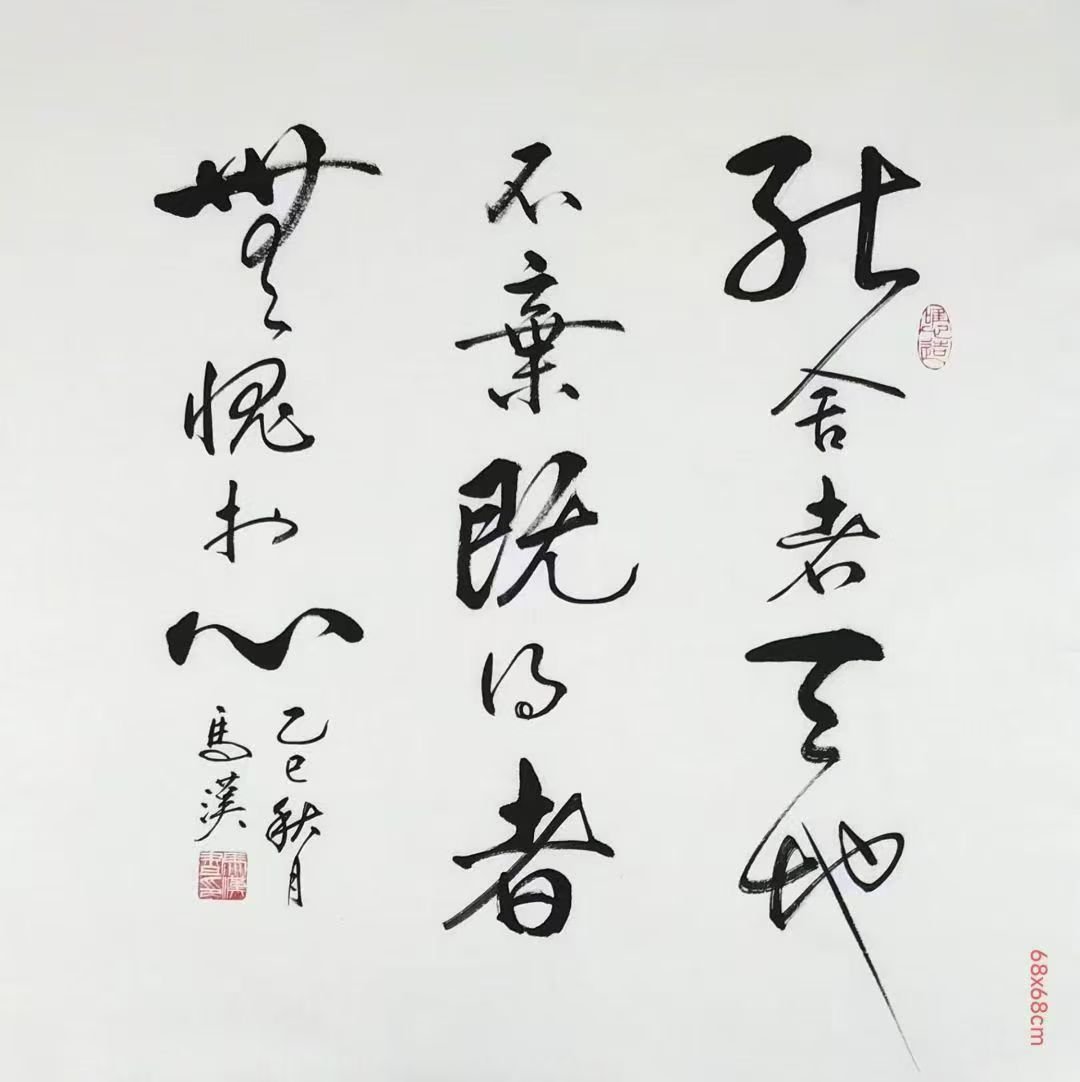 能舍者天地
不棄既得者
無愧於心
乙巳秋月
馬漢
68x68cm